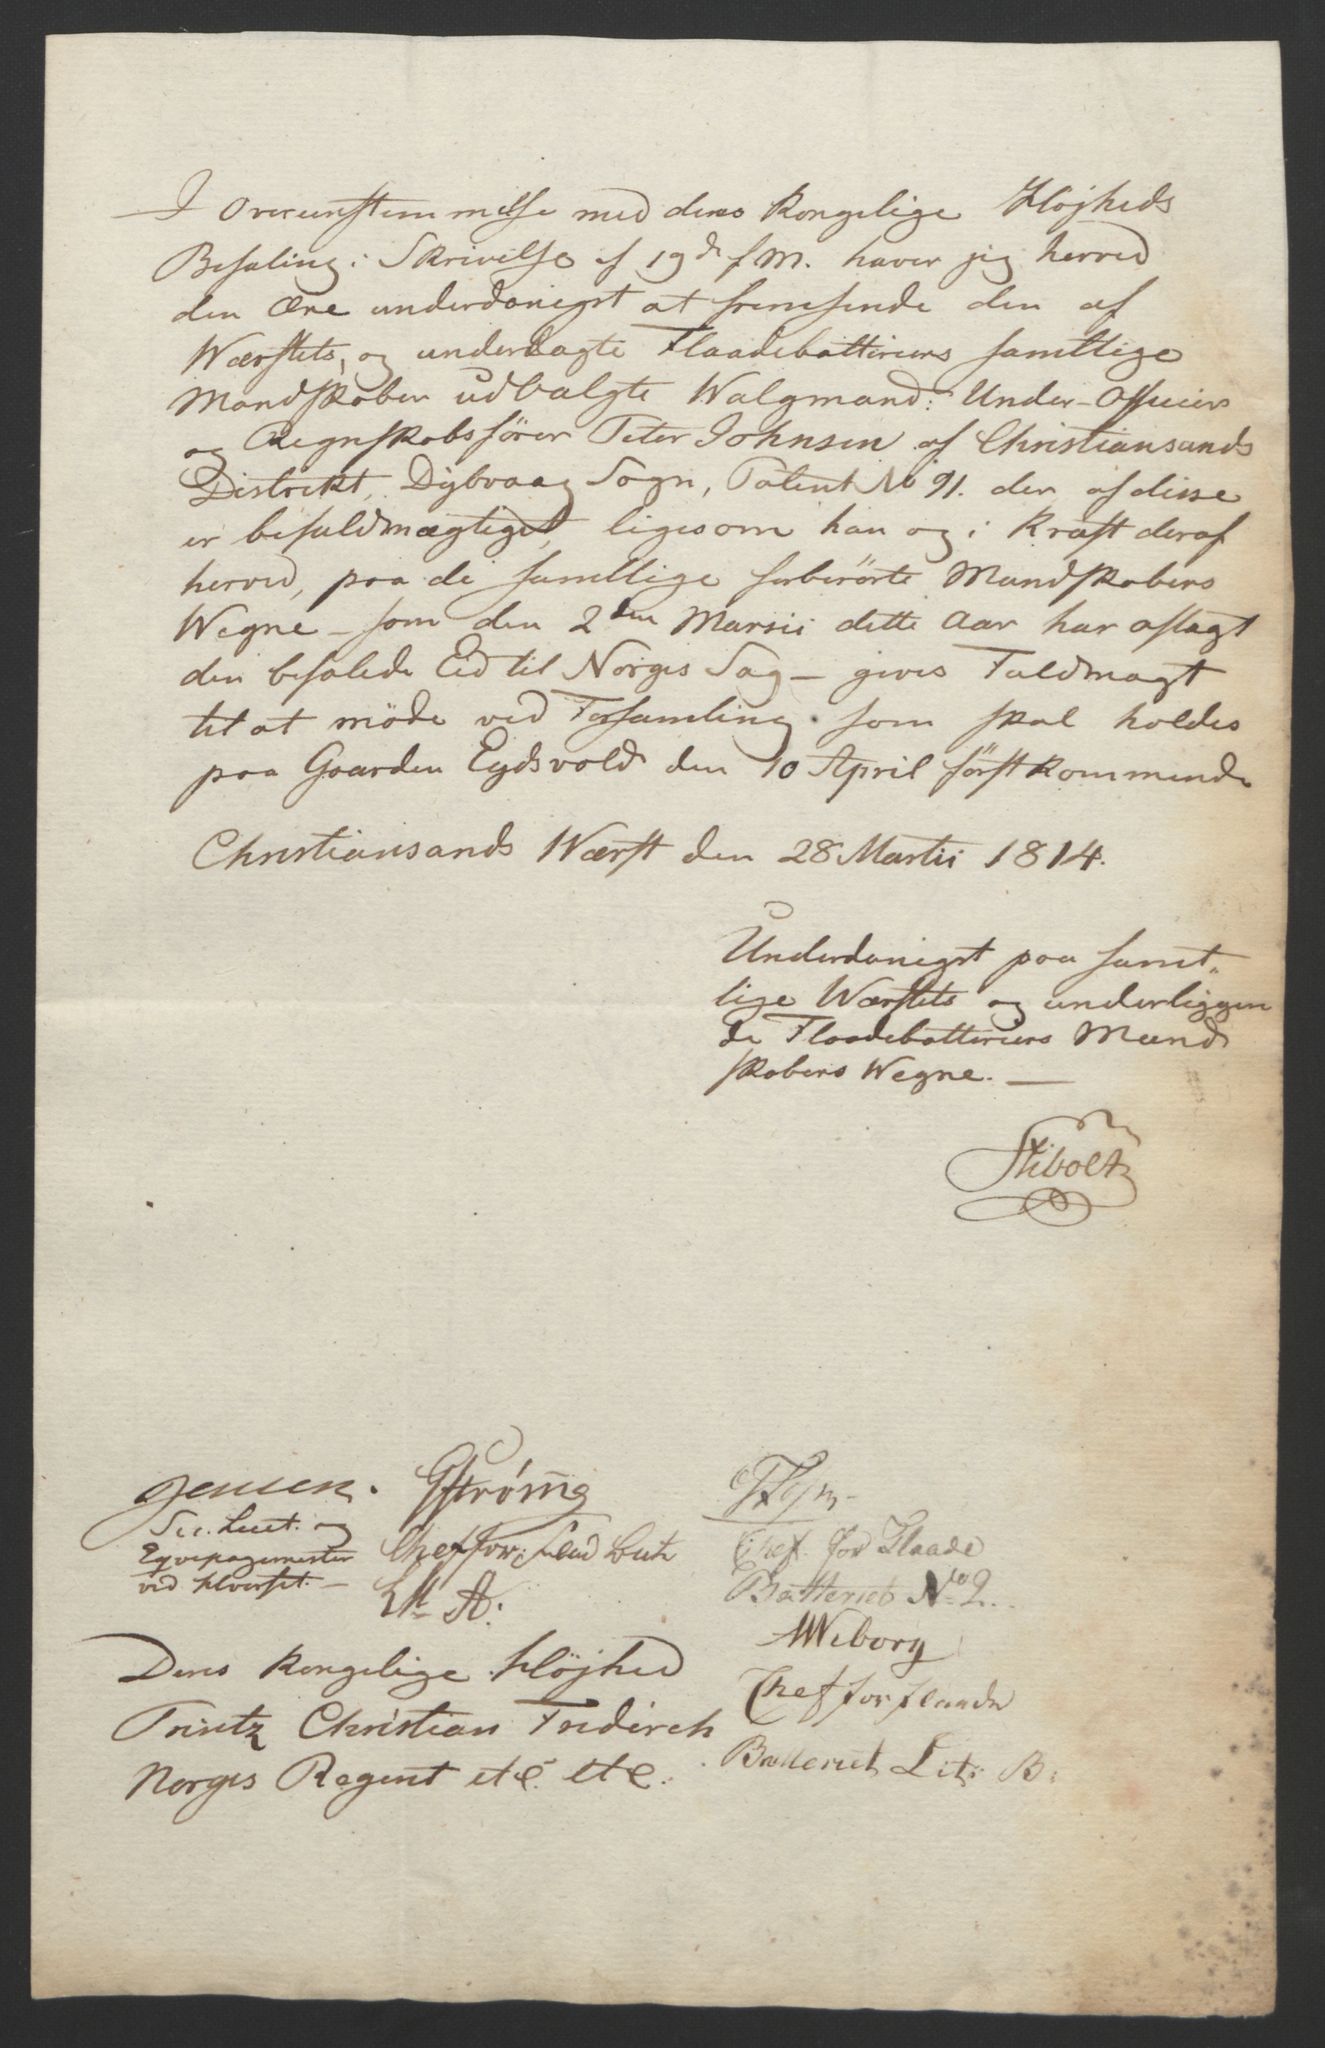 I Overeenstemmelse med deres Kongelige Højheds
Befaling i Skrivelse af 19de f. M. haver jeg herved
den Ære underdanigst at fremsende den af
Wærftets, og underlagte Flaadebatteriers samtlige
Mandskaber udvalgte Walgmand: Under-Officier
og Regnskabsfører Peter Johnsen af Christiansands
Distrikt, Dÿbvaag Sogn, Patent No 91. der af disse
er befuldmægtiget, ligesom han og i Kraft deraf
herved, paa de samtlige forberörte Mandskabers
Wegne – som den 2den Marsii dette Aar har aflagt
den befalede Eed til Norges Sag – gives Fuldmagt
til at möde ved Forsamling som skal holdes
paa Gaarden Eydsvold den 10 April förstkommende
Christiansands Wærft den 28 Martii 1814.
Underdanigst paa samt-
lige Wærftets og underliggen
de Flaadebatteriers Mand
skabers Wegne. –
Stibolt
Jensen. GStrøm
Sec. Lieut. og Chef for Flaad Batr
Eqvipagemester Litr A.
ved Hverfet. –
Chef for Flaade
Batteriet No 2.
Wiborg
Chef for flaade
Batteriet Litr B:
Deres kongelige Højhed
Printz Christian Friderich
Norges Regent etc. etc.